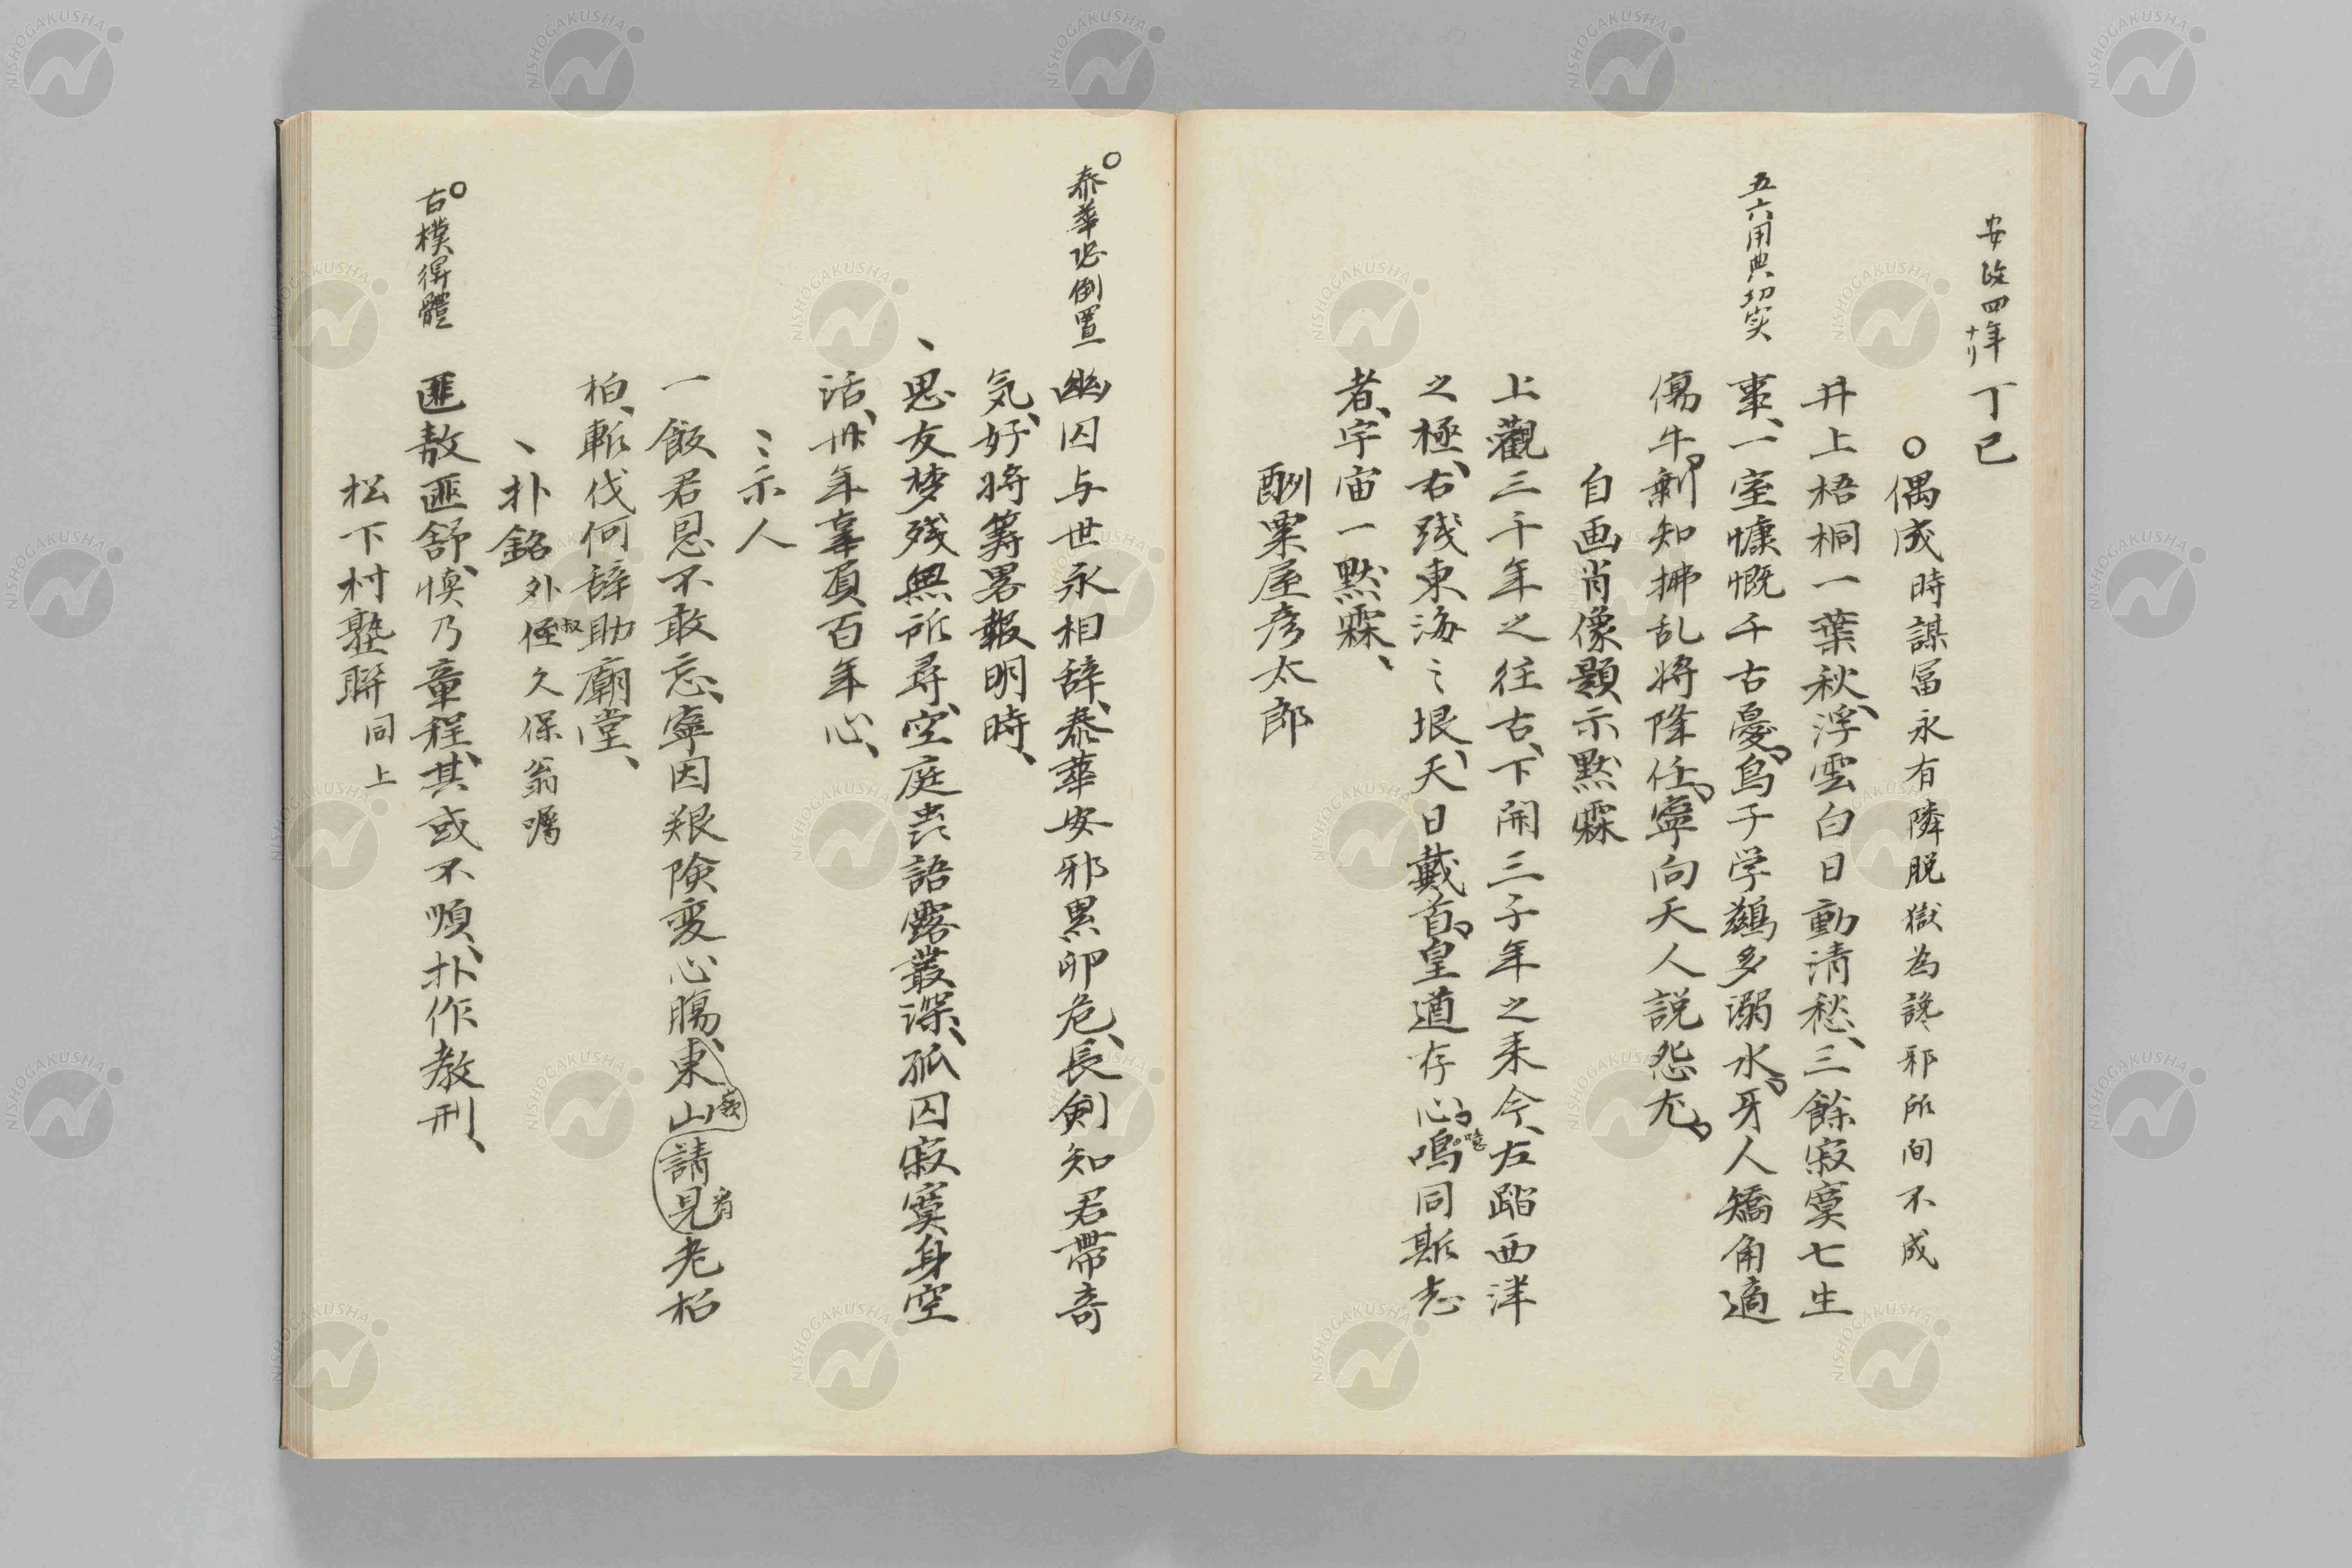 安政四年十月丁巳
○偶成時謀冨永有隣脱獄為讒邪所間不成
井上梧桐一葉秋、浮雲白日動清愁、三餘寂寞七生
五六用典切实
事、一室慷慨千古憂、鳥子学鷀多溺水、牙人矯角適
傷牛、剿知拂乱将降任、寧向天人説怨尤、
自画肖像題示黙霖
上觀三千年之往古、下開三子年之来今、左蹈西洋
之極、右踐東海〻垠、天日戴首、皇道存心、嗚同斯志
噫
者、宇宙一黙霖、
酬粟屋彦太郎
○泰華恐倒置
幽囚与世永相辞、泰華安邪累卵危、長剣知君帯奇
気、好将籌畧報明時、
、思友梦残無所尋、空庭虫語露叢深、孤囚寂寞身空
活、卅年辜負百年心、
〻示人
一飯君恩不敢忘、寧因艱険変心膓、東山請見老松
柏、斬伐何辞助廟堂、
、朴銘外叔久保翁嘱
○古樸得體
匪敖匪舒、慎乃章程、其或不順、朴作教刑、
松下村塾聨同上